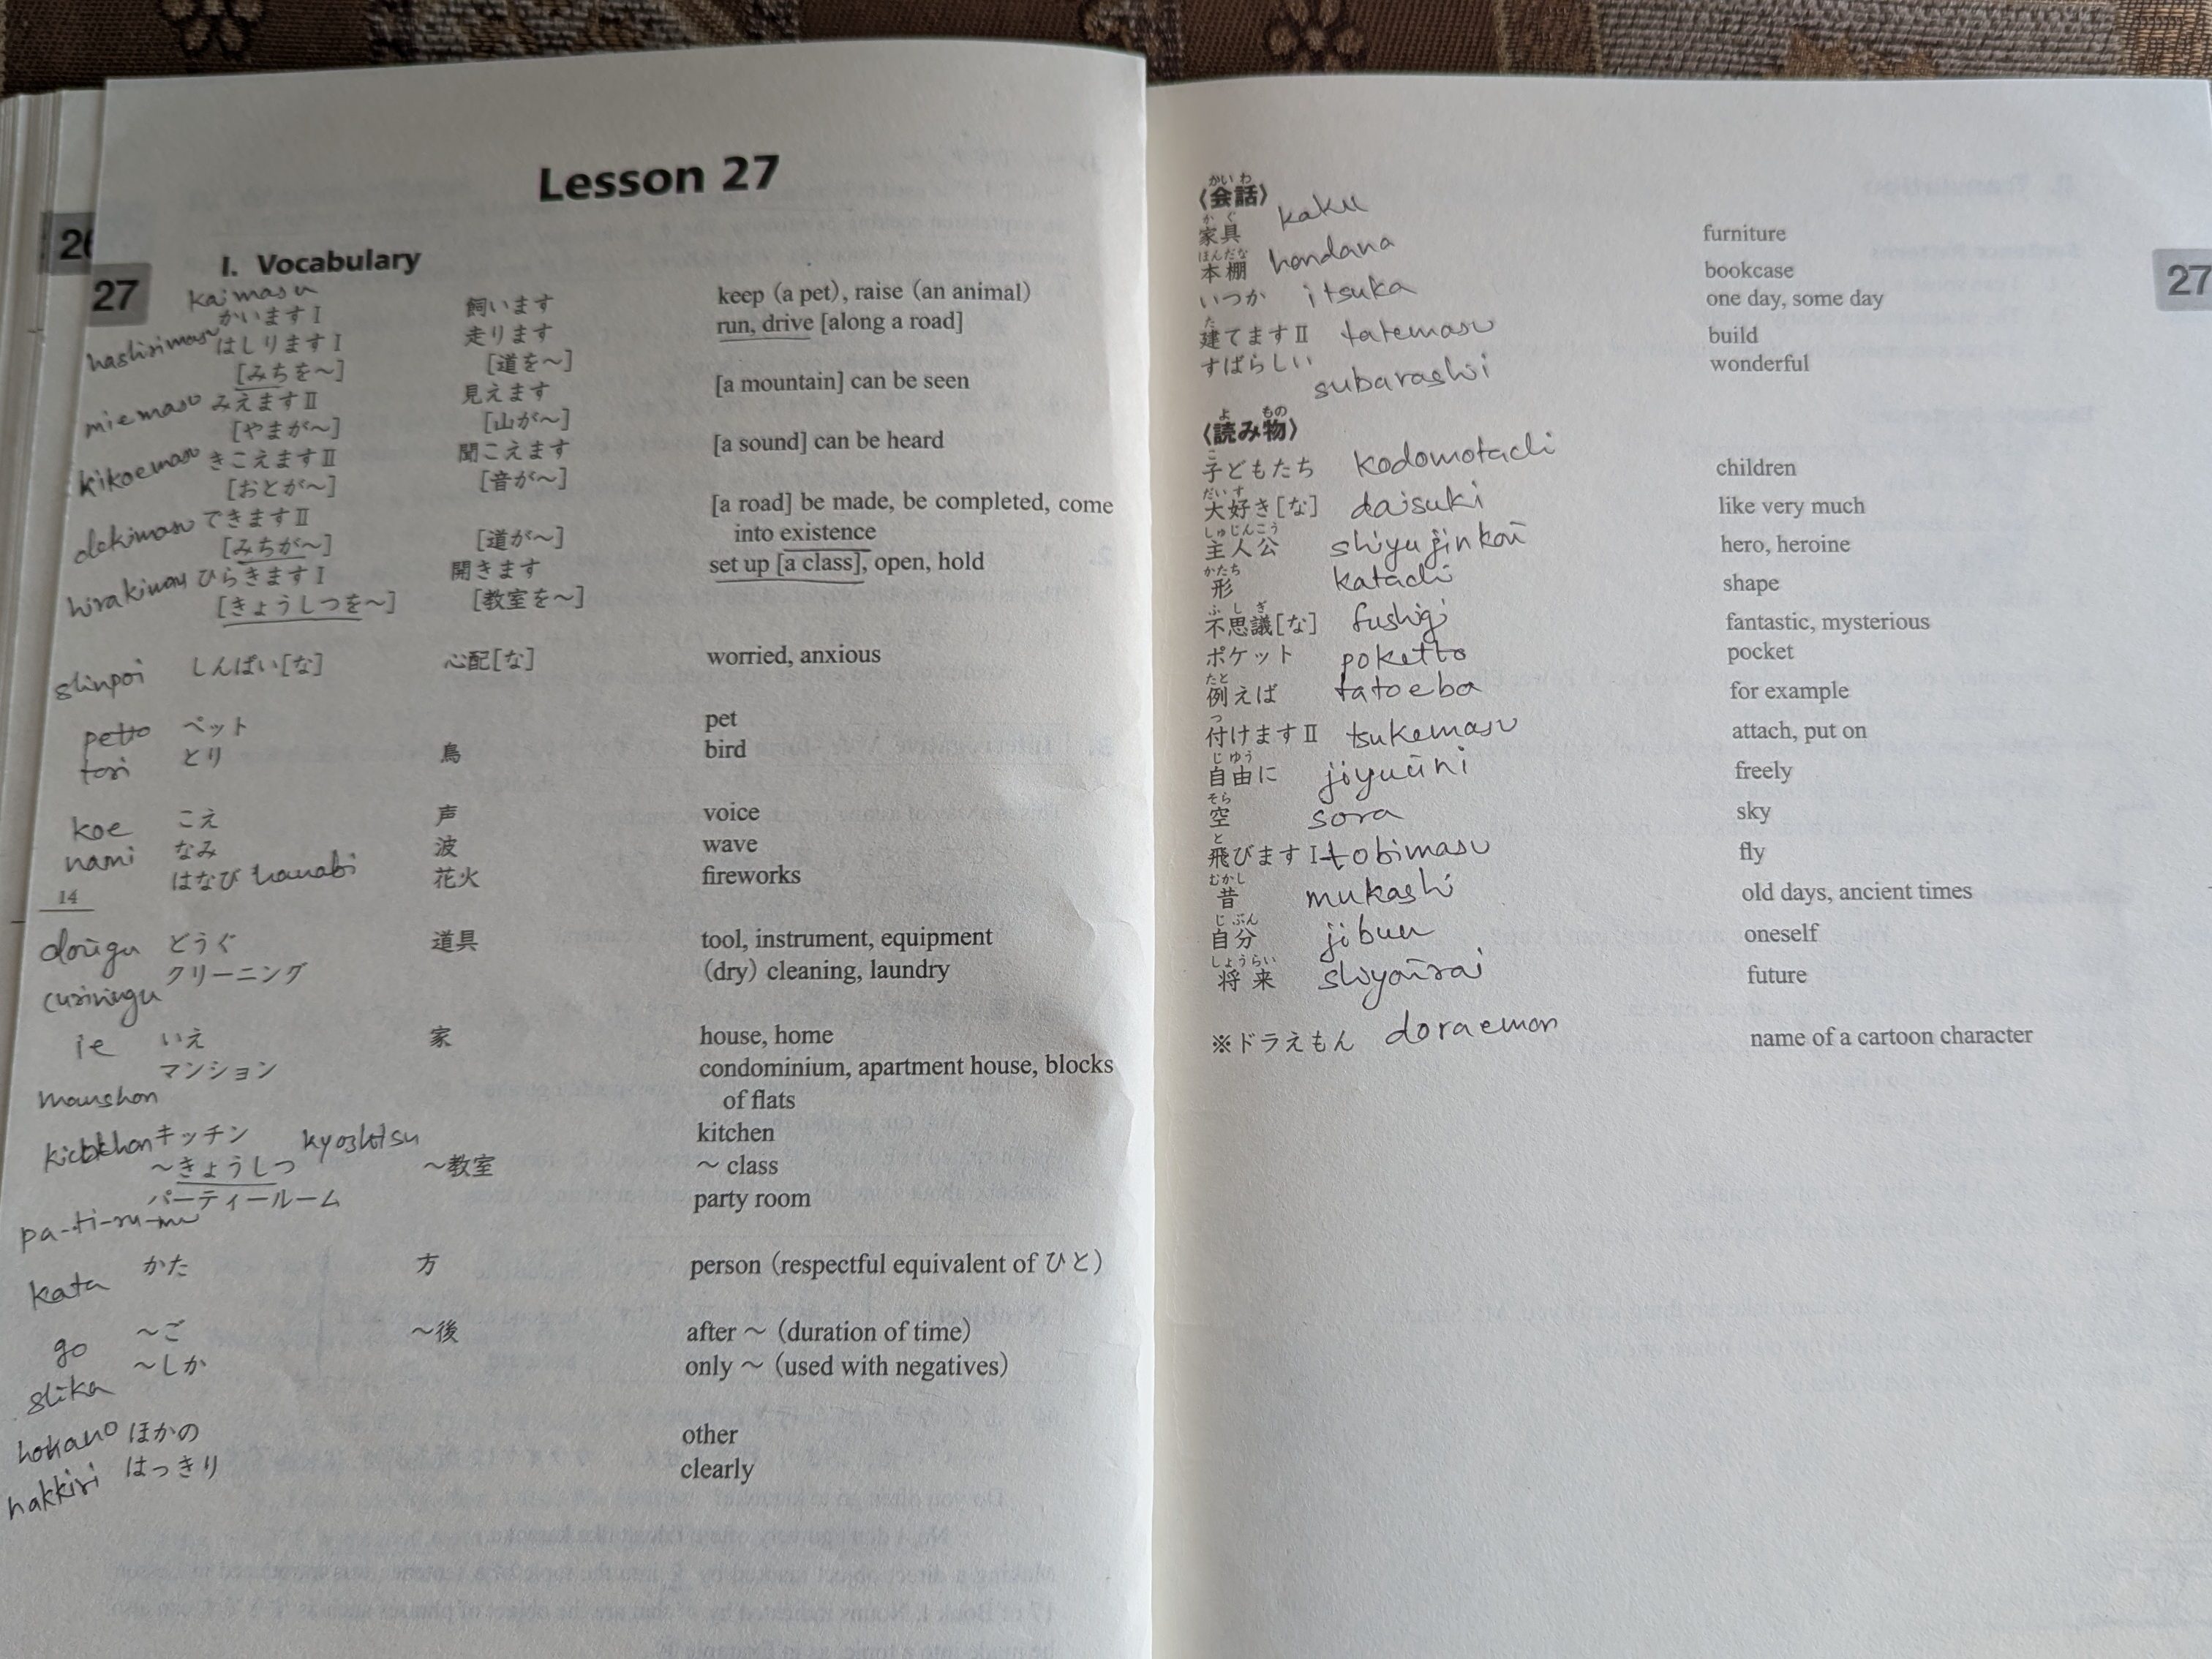 Lesson 27
26
27
I. Vocabulary
kaimasu
かいますⅠ 飼います keep (a pet), raise (an animal)
hashirimasu はしりますⅠ 走ります run, drive [along a road]
[みちを～] [道を～]
miemasu みえますⅡ 見えます [a mountain] can be seen
[やまが～] [山が～]
kikoemasu きこえますⅡ 聞こえます [a sound] can be heard
[おとが～] [音が～]
dekimasu できますⅡ [a road] be made, be completed, come
[みちが～] [道が～] into existence
ひらきますⅠ 開きます set up [a class], open, hold
[きょうしつを～] [教室を～]
しんぱい[な] 心配[な] worried, anxious
petto ペット pet
tori とり 鳥 bird
koe こえ 声 voice
nami なみ 波 wave
はなび hanabi 花火 fireworks
14
どうぐ 道具 tool, instrument, equipment
クリーニング (dry) cleaning, laundry
ie いえ 家 house, home
マンション condominium, apartment house, blocks
of flats
キッチン kitchen
～きょうしつ ～教室 ～ class
パーティールーム party room
pa-ti-ru-mu
kata かた 方 person (respectful equivalent of ひと)
go ～ご ～後 after ～ (duration of time)
shika ～しか only ～ (used with negatives)
hokano ほかの other
hakkiri はっきり clearly
かいわ
〈会話〉
かぐ
家具 kaku furniture
ほんだな
本棚 hondana bookcase
いつか itsuka one day, some day
た
建てますⅡ tatemasu build
すばらしい subarashii wonderful
よ もの
〈読み物〉
こ
子どもたち kodomotachi children
だいす
大好き[な] daisuki like very much
しゅじんこう
主人公 shiyujinkoū hero, heroine
かたち
形 katachi shape
ふしぎ
不思議[な] fushigi fantastic, mysterious
ポケット poketto pocket
たと
例えば tatoeba for example
つ
付けますⅡ tsukemasu attach, put on
じゆう
自由に jiyuūni freely
そら
空 sora sky
と
飛びますⅠ tobimasu fly
むかし
昔 mukashi old days, ancient times
じぶん
自分 jibun oneself
しょうらい
将来 shiyoūrai future
※ドラえもん doraemon name of a cartoon character
27